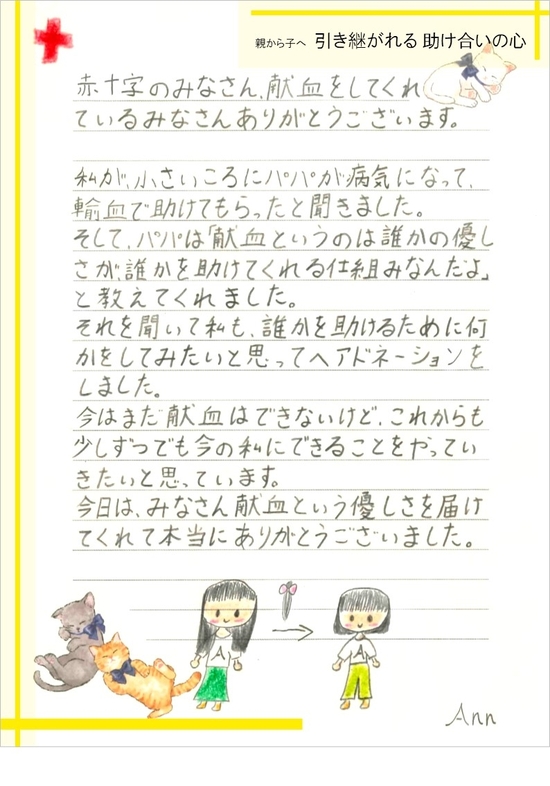 親から子へ 引き継がれる 助け合いの心
赤十字のみなさん、献血をしてくれ
ているみなさんありがとうございます。
私が、小さいころにパパが病気になって、
輸血で助けてもらったと聞きました。
そして、パパは「献血というのは誰かの優し
さが、誰かを助けてくれる仕組みなんだよ」
と教えてくれました。
それを聞いて私も、誰かを助けるために何
かをしてみたいと思ってヘアドネーションを
しました。
今はまだ献血はできないけど、これからも
少しずつでも今の私にできることをやってい
きたいと思っています。
今日は、みなさん献血という優しさを届け
てくれて本当にありがとうございました。
A
A
Ann